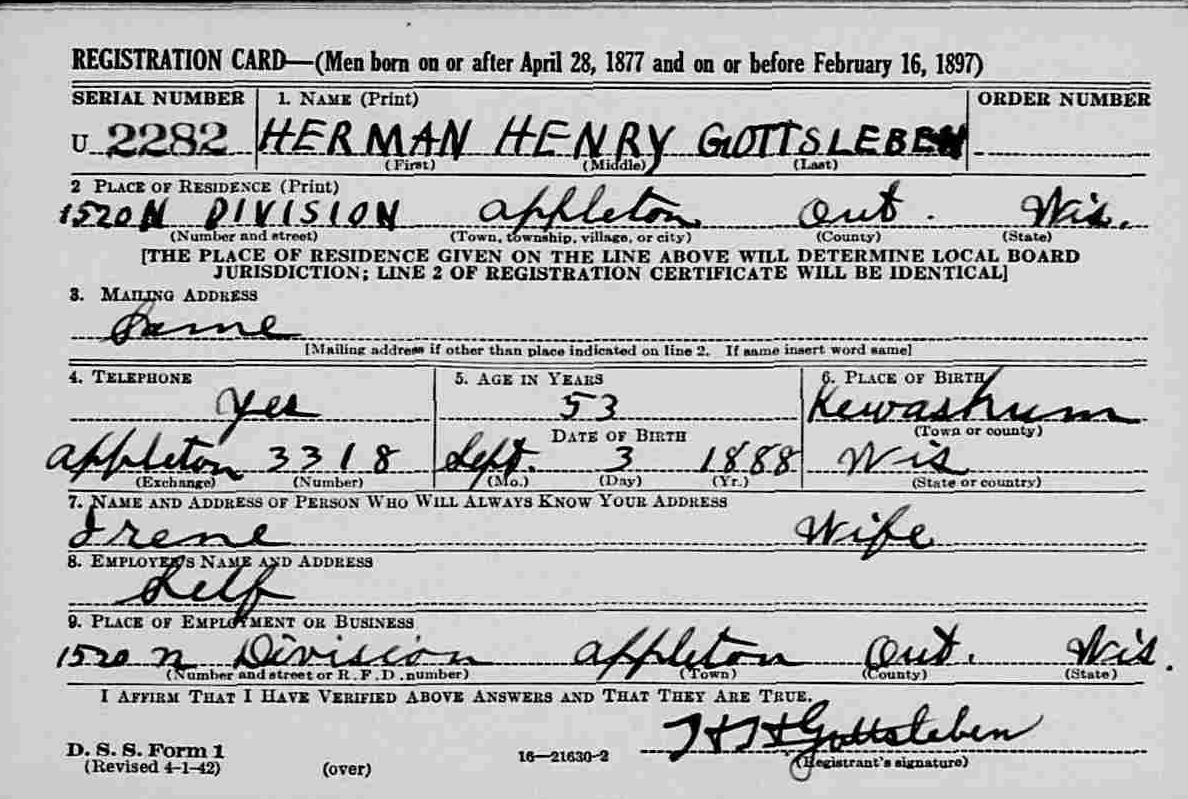 REGISTRATION CARD—(Men born on or after April 28, 1877 and on or before February 16, 1897)
SERIAL NUMBER 1. NAME (Print) ORDER NUMBER
U 2282 HERMAN HENRY GOTTSLEBEN
(First) (Middle) (Last)
2 PLACE OF RESIDENCE (Print)
1520 N DIVISION Appleton Out. Wis.
(Number and street) (Town, township, village, or city) (County) (State)
[THE PLACE OF RESIDENCE GIVEN ON THE LINE ABOVE WILL DETERMINE LOCAL BOARD
JURISDICTION; LINE 2 OF REGISTRATION CERTIFICATE WILL BE IDENTICAL]
3. MAILING ADDRESS
Same
[Mailing address if other than place indicated on line 2. If same insert word same]
4. TELEPHONE 5. AGE IN YEARS 6. PLACE OF BIRTH
Yes 53 Kewashum
DATE OF BIRTH (Town or county)
Appleton 3318 Sept. 3 1888 Wis
(Exchange) (Number) (Mo.) (Day) (Yr.) (State or country)
7. NAME AND ADDRESS OF PERSON WHO WILL ALWAYS KNOW YOUR ADDRESS
Irene Wife
8. EMPLOYER'S NAME AND ADDRESS
Self
9. PLACE OF EMPLOYMENT OR BUSINESS
1520 N Division Appleton Out. Wis.
(Number and street or R. F. D. number) (Town) (County) (State)
I AFFIRM THAT I HAVE VERIFIED ABOVE ANSWERS AND THAT THEY ARE TRUE.
H H Gottsleben
D. S. S. Form 1
(Revised 4-1-42) (over) 16—21630-2 (Registrant's signature)